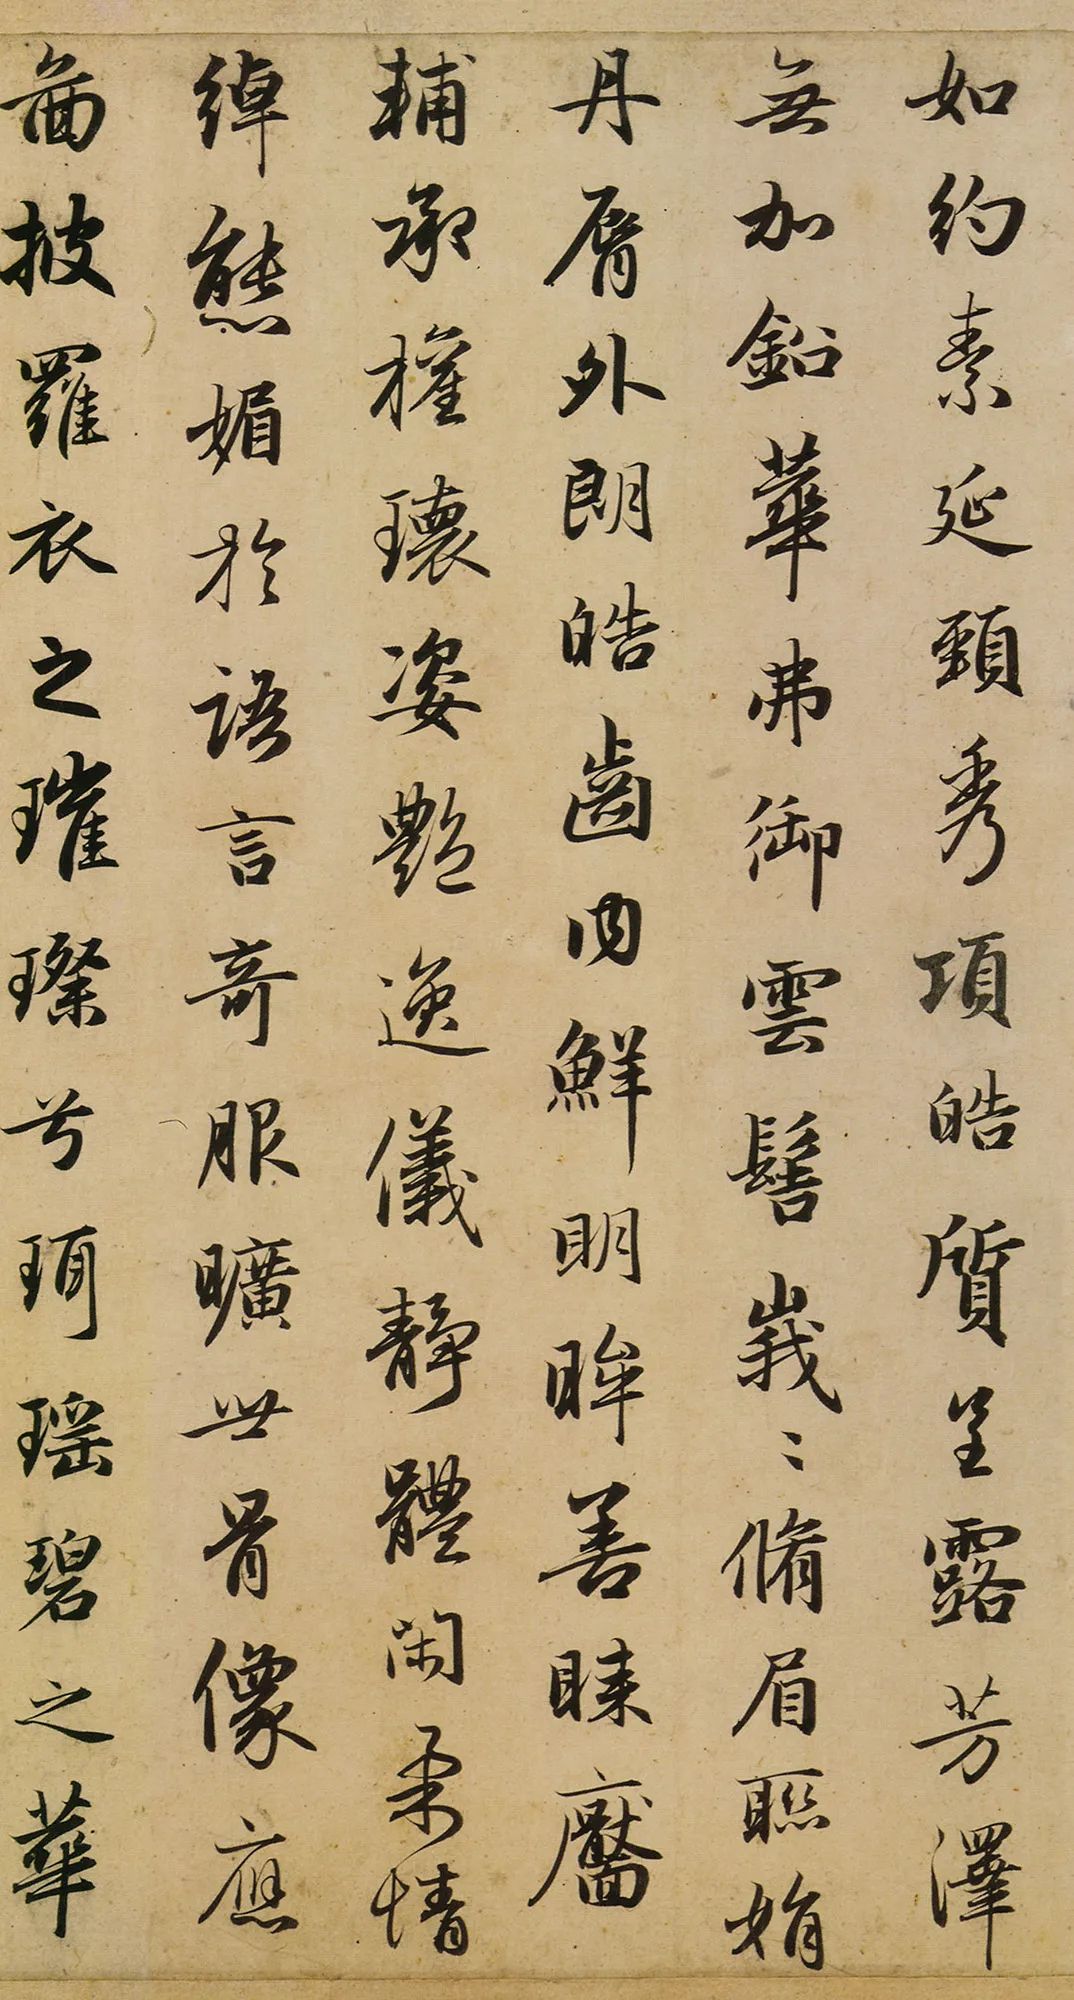 如約素延頸秀項皓質呈露芳澤
無加鉛華弗御雲髻峩〻脩眉聯娟
丹脣外朗皓齒內鮮明眸善睞靨
輔承權瓌姿艷逸儀靜體閑柔情
綽態媚於語言竒服曠世骨像應
啚披羅衣之璀璨兮珥瑶碧之華